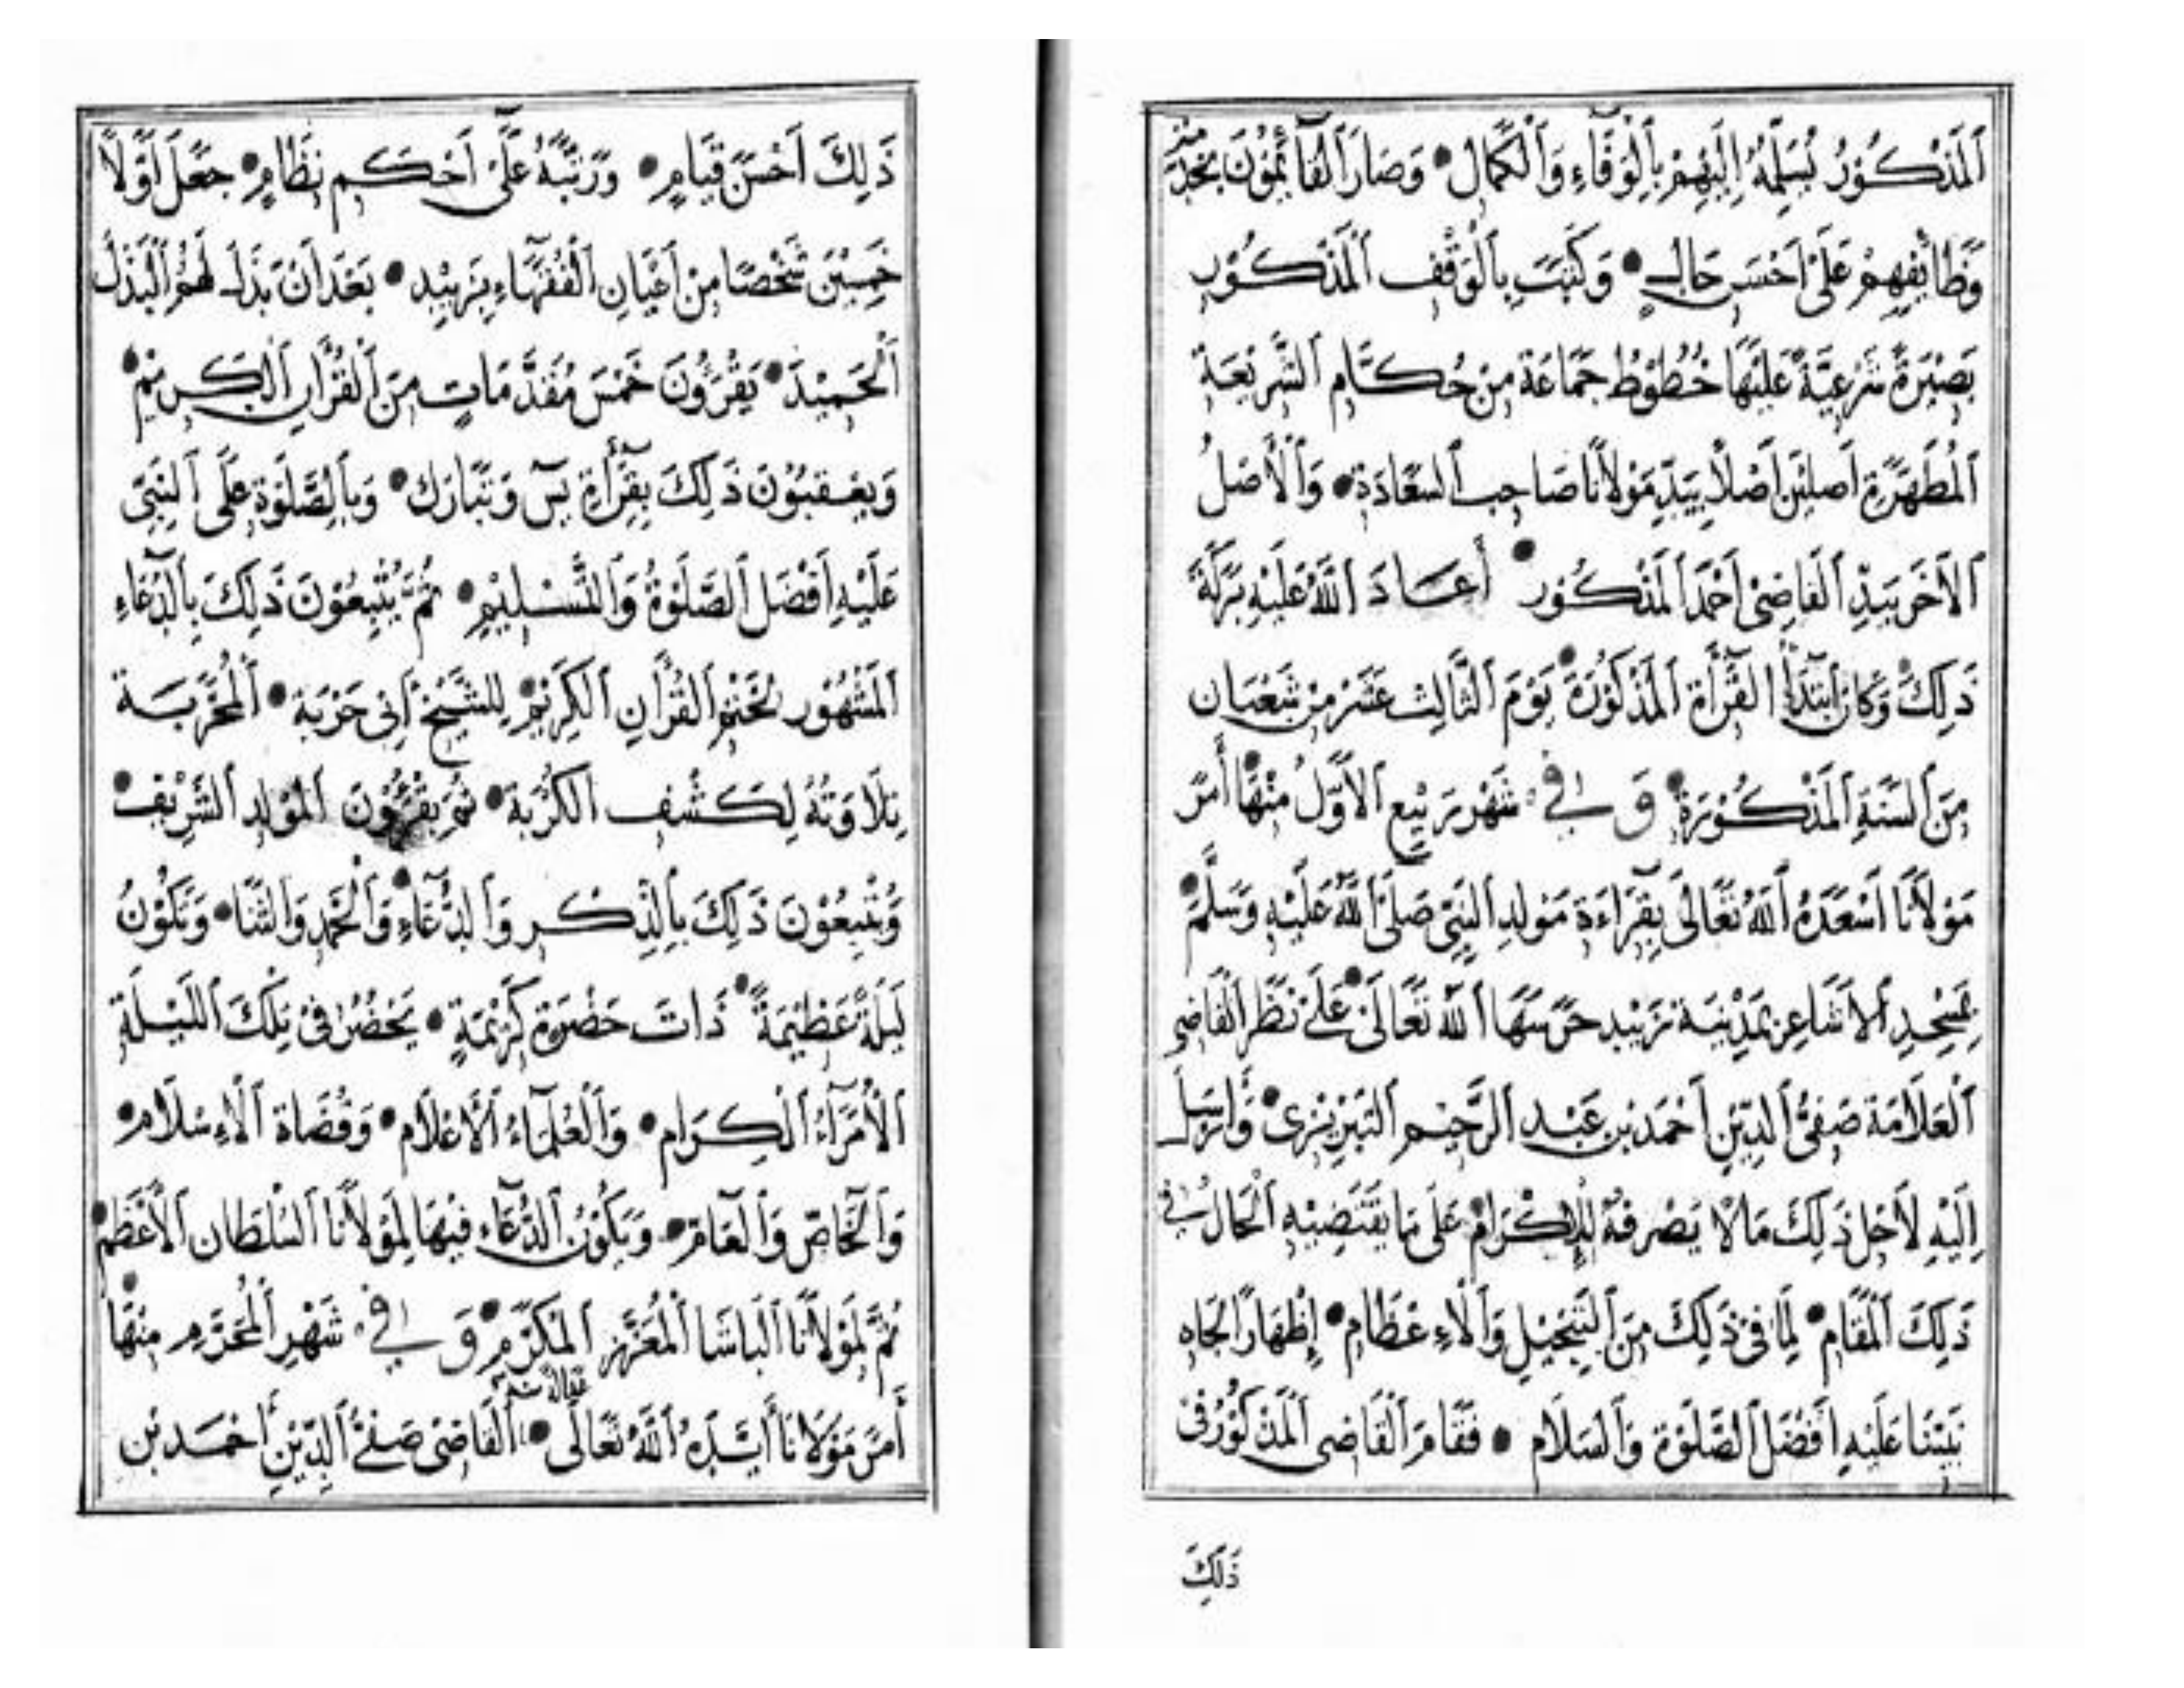 اَلْمَذْكُوْرُ يُسَلِّمُهُ اِلَيْهِمْ بِالْوَفَآءِ وَاَلْكَمَالِ • وَصَارَ اَلْقَآئِمُوْنَ بِخِدْمَتِهِ
وَظَائِفِهِمْ عَلَىٰ اَحْسَنِ حَالٍ • وَكُتِبَتْ بِالْوَقْفِ اَلْمَذْكُوْرِ
بَصِيْرَةٌ شَرْعِيَّةٌ عَلَيْهَا خُطُوْطُ جَمَاعَةٍ مِنْ حُكَّامِ اَلشَّرِيْعَةِ
اَلْمُطَهَّرَةِ اَصْلَيْنِ اَصْلاً بِيَدِ مَوْلاَنَا صَاحِبِ السَّعَادَةِ • وَاَلْاَصْلُ
اَلْاَخَرُ بِيَدِ اَلْقَاضِيْ اَحْمَدَ اَلْمَذْكُوْرِ • أَعَادَ اَللّٰهُ عَلَيْهِ بَرَكَةَ
ذٰلِكَ وَكَانَ اَبْتِدَآءُ القِرَأَةِ اَلْمَذْكُوْرَةِ • يَوْمَ اَلثَّالِثَ عَشَرَ مِنْ شَعْبَانَ
مِنَ السَّنَةِ اَلْمَذْكُوْرَةِ • وَ فِيْ شَهْرِ رَبِيْعِ اَلْاَوَّلِ مِنْهَا • أَمَرَ
مَوْلاَنَا اَسْعَدَهُ اَللّٰهُ تَعَالَىٰ بِقِرَآءَةِ مَوْلِدِ اَلنَّبِيِّ صَلَّىٰ اللّٰهُ عَلَيْهِ وَسَلَّمَ •
بِمَسْجِدِ اَلْاَشَاعِرِ بِمَدِيْنَةِ زَبِيْدٍ حَرَسَهَا اَللّٰهُ تَعَالَىٰ • عَلَىٰ نَظَرِ اَلْقَاضِي
اَلْعَلاَمَةِ صَفِيِّ اَلدِّيْنِ اَحْمَدَ بِنِ عَبْدِ اَلرَّحِيْمِ اَلتِّبْرِيْزِي • وَأَرْسَلَ
اِلَيْهِ لِاَجْلِ ذٰلِكَ مَالاً يَصْرِفُهُ لِلْاِكْرَامِ • عَلَى مَا يَقْتَضِيْهِ اَلْحَالُ فِيْ
ذٰلِكَ اَلْمَقَامِ • لِمَا فِىْ ذٰلِكَ مِنَ اَلتَّبْجِيْلِ وَاَلْاِعْظَامِ • إِظْهَارًا لِجَاهِ
نَبِيِّنَا عَلَيْهِ اَفْضَلُ اَلصَّلٰوةِ وَاَلسَّلاَمِ • فَقَامَ اَلْقَاضِي اَلْمَذْكُوْرُ فِىْ
ذٰلِكَ
ذٰلِكَ اَحْسَنَ قِيَامٍ • وَرَتَّبَهُ عَلَىٰ اَحْكَمِ نِظَامٍ • جَعَلَ اَوَّلاً
خَمْسِيْنَ شَخْصًا مِنْ اَعْيَانِ اَلْفُقَهَآءِ بِزَبِيْدٍ • بَعْدَ اَنْ بَذَلَ لَهُمُ اَلْبَذْلَ
اَلْحَمِيْدَ • يَقْرَؤُنَ خَمْسَ مُقَدَّمَاتٍ مِنَ اَلْقُرْاٰنِ اَلْكَرِيْمِ •
وَيَعْقِبُوْنَ ذٰلِكَ بِقِرَأَةِ يٰسٓ وَتَبَارَكَ • وَبِاَلصَّلٰوةِ عَلَى اَلنَّبِيِّ
عَلَيْهِ اَفْضَلُ اَلصَّلٰوةُ وَاَلتَّسْلِيْمِ • ثُمَّ يُتْبِعُوْنَ ذٰلِكَ بِالدُّعَآءِ
اَلْمَشْهُوْرِ لِخَتْمِ اَلْقُرْاٰنِ اَلْكَرِيْمِ • لِلشَّيْخِ اَبِىْ حَرْبَةَ • اَلْمُجَرَّبَةِ
تِلَاوَتُهُ لِكَشْفِ اَلْكُرْبَةِ • ثُمَّ يَقْرَؤُنَ اَلْمَوْلِدَ اَلشَّرِيْفَ •
وَيُتْبِعُوْنَ ذٰلِكَ بِاَلذِّكْرِ وَاَلدُّعَآءِ • وَاَلْحَمْدِ وَاَلثَّنَا • وَتَكُوْنُ
لَيْلَةً عَظِيْمَةً • ذَاتَ حَضْرَةٍ كَرِيْمَةٍ • يَحْضُرُ فِىْ تِلْكَ اَللَّيْلَةِ
اَلْأُمَرَآءُ اَلْكِرَامِ • وَاَلْعُلَمَآءُ اَلْاَعْلَامِ • وَقُضَاةُ اَلْاِسْلَامِ •
وَاَلْخَاصِّ وَاَلْعَامِّ • وَيَكُوْنُ اَلدُّعَآءِ فِيْهَا لِمَوْلاَنَا اَلسُّلْطَانِ اَلْاَعْظَمِ •
ثُمَّ لِمَوْلاَنَا اَلْبَاشَا اَلْمُعَزَّزِ اَلْمُكَرَّمِ • وَ فِيْ شَهْرِ اَلْمُحَرَّمِ مِنْهَا •
أَمَرَ مَوْلَانَا أَيَّدَهُ اَللّٰهُ تَعَالَى • اَلْقَاضِيْ صَفِيَّ اَلدِّيْنِ أَحْمَدَ بْنِ